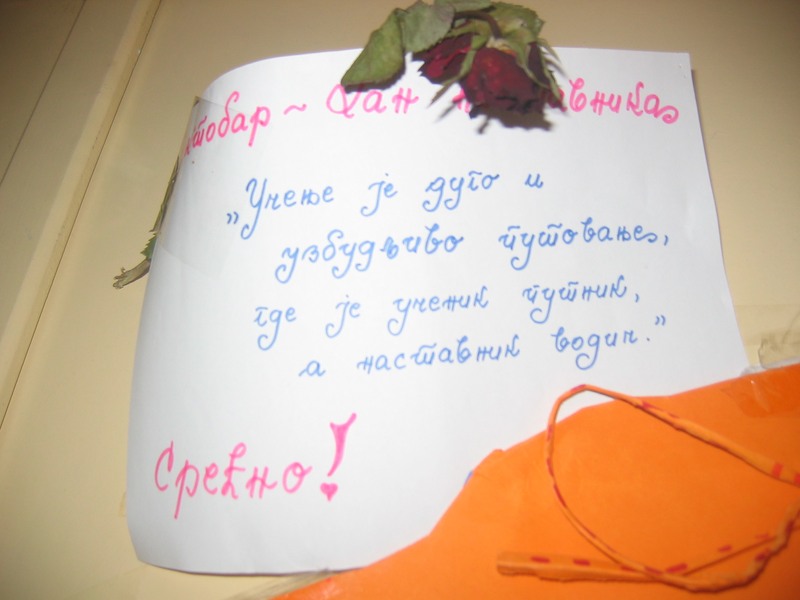 ктобар ~ Дан наставника
„Учење је дуго и
узбудљиво путовање,
где је ученик путник,
а наставник водич.”
Срећно!